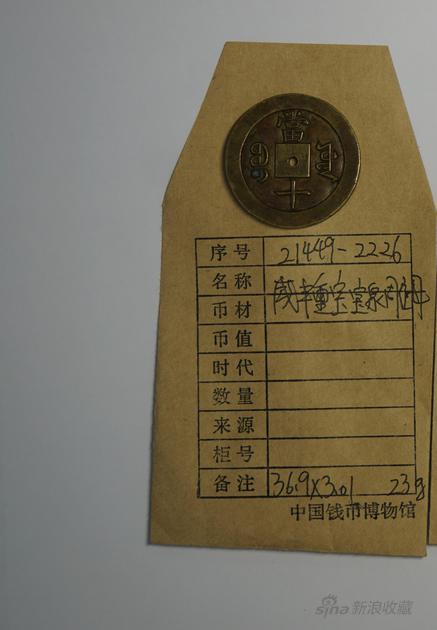 當
十
序号 21449-2226
名称 咸丰重宝宝泉
币材
币值
时代
数量
来源
柜号
备注 36.9×3.01 23g
中国钱币博物馆
sina 新浪收藏